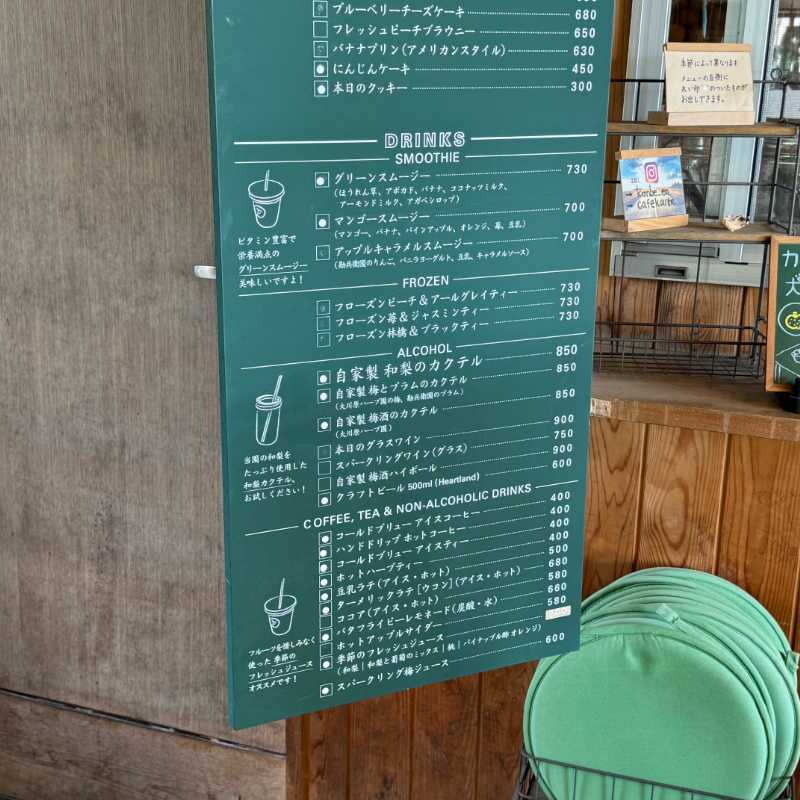 ブルーベリーチーズケーキ 680
フレッシュピーチブラウニー 650
バナナプリン(アメリカンスタイル) 630
にんじんケーキ 450
本日のクッキー 300
DRINKS
SMOOTHIE
グリーンスムージー 730
(ほうれん草、アボカド、バナナ、ココナッツミルク、
アーモンドミルク、アガベシロップ)
マンゴースムージー 700
(マンゴー、バナナ、パインアップル、オレンジ、苺、豆乳)
アップルキャラメルスムージー 700
(勘兵衛園のりんご、バニラヨーグルト、豆乳、キャラメルソース)
ビタミン豊富で
栄養満点の
グリーンスムージー
美味しいですよ!
FROZEN
フローズンピーチ&アールグレイティー 730
フローズン苺&ジャスミンティー 730
フローズン林檎&ブラックティー 730
ALCOHOL
自家製 和梨のカクテル 850
自家製 梅とプラムのカクテル 850
(大川原ハーブ園の梅、勘兵衛園のプラム)
自家製 梅酒のカクテル 850
(大川原ハーブ園)
本日のグラスワイン 900
スパークリングワイン(グラス) 750
自家製 梅酒ハイボール 900
クラフトビール 500ml (Heartland) 600
当園の和梨を
たっぷり使用した
和梨カクテル、
お試しください!
COFFEE, TEA & NON-ALCOHOLIC DRINKS
コールドブリュー アイスコーヒー 400
ハンドドリップ ホットコーヒー 400
コールドブリュー アイスティー 400
ホットハーブティー 400
豆乳ラテ(アイス・ホット) 500
ターメリックラテ [ウコン] (アイス・ホット) 680
ココア(アイス・ホット) 580
バタフライピーレモネード(炭酸・水) 660
ホットアップルサイダー 580
季節のフレッシュジュース
(和梨 | 和梨と葡萄のミックス | 桃 | パイナップル酢 オレンジ)
スパークリング梅ジュース 600
フルーツを惜しみなく
使った 季節の
フレッシュジュース
オススメです!
季節によって異なります
メニューの左側に
丸い印のついたものが
お出しできます。